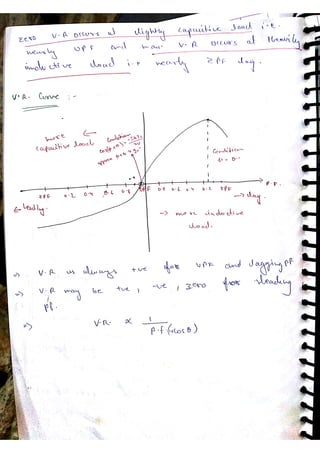 zero V.R occurs at slightly capacitive load i.e.
nearly UPF and max V.R occurs at Heavily
inductive load i.e nearly ZPF lag.
V.R. Curve :-
more
capacitive load
Condition
ZPF 0.2 0.4 0.6 0.8 UPF 0.8 0.6 0.4 0.2 ZPF P.F.
Condition
← leading
→ lag.
→ more inductive
load.
V.R is always +ve for UPF and lagging Pf
V.R may be +ve, -ve, zero for leading
Pf.
V.R. ∝ 1
P.f (cosθ)